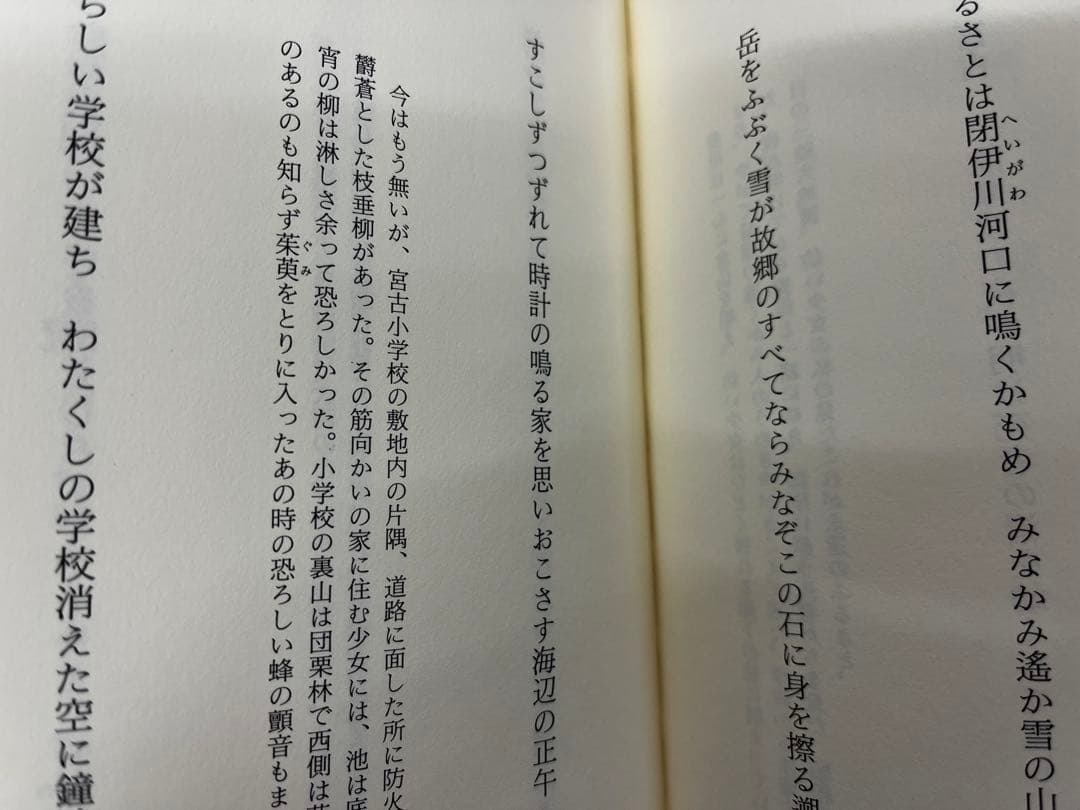 るさとは閉伊川河口に鳴くかもめ のみなかみ遙か雪の山
へいがわ
岳をふぶく雪が故郷のすべてならみなぞこの石に身を擦る溯
すこしずつずれて時計の鳴る家を思いおこさす海辺の正午
今はもう無いが、宮古小学校の敷地内の片隅、道路に面した所に防火
欝蒼とした枝垂柳があった。その筋向かいの家に住む少女には、池は底
宵の柳は淋しさ余って恐ろしかった。小学校の裏山は団栗林で西側は
のあるのも知らず茱萸をとりに入ったあの時の恐ろしい蜂の顫音もま
ぐみ
らしい学校が建ち わたくしの学校消えた空に鐘